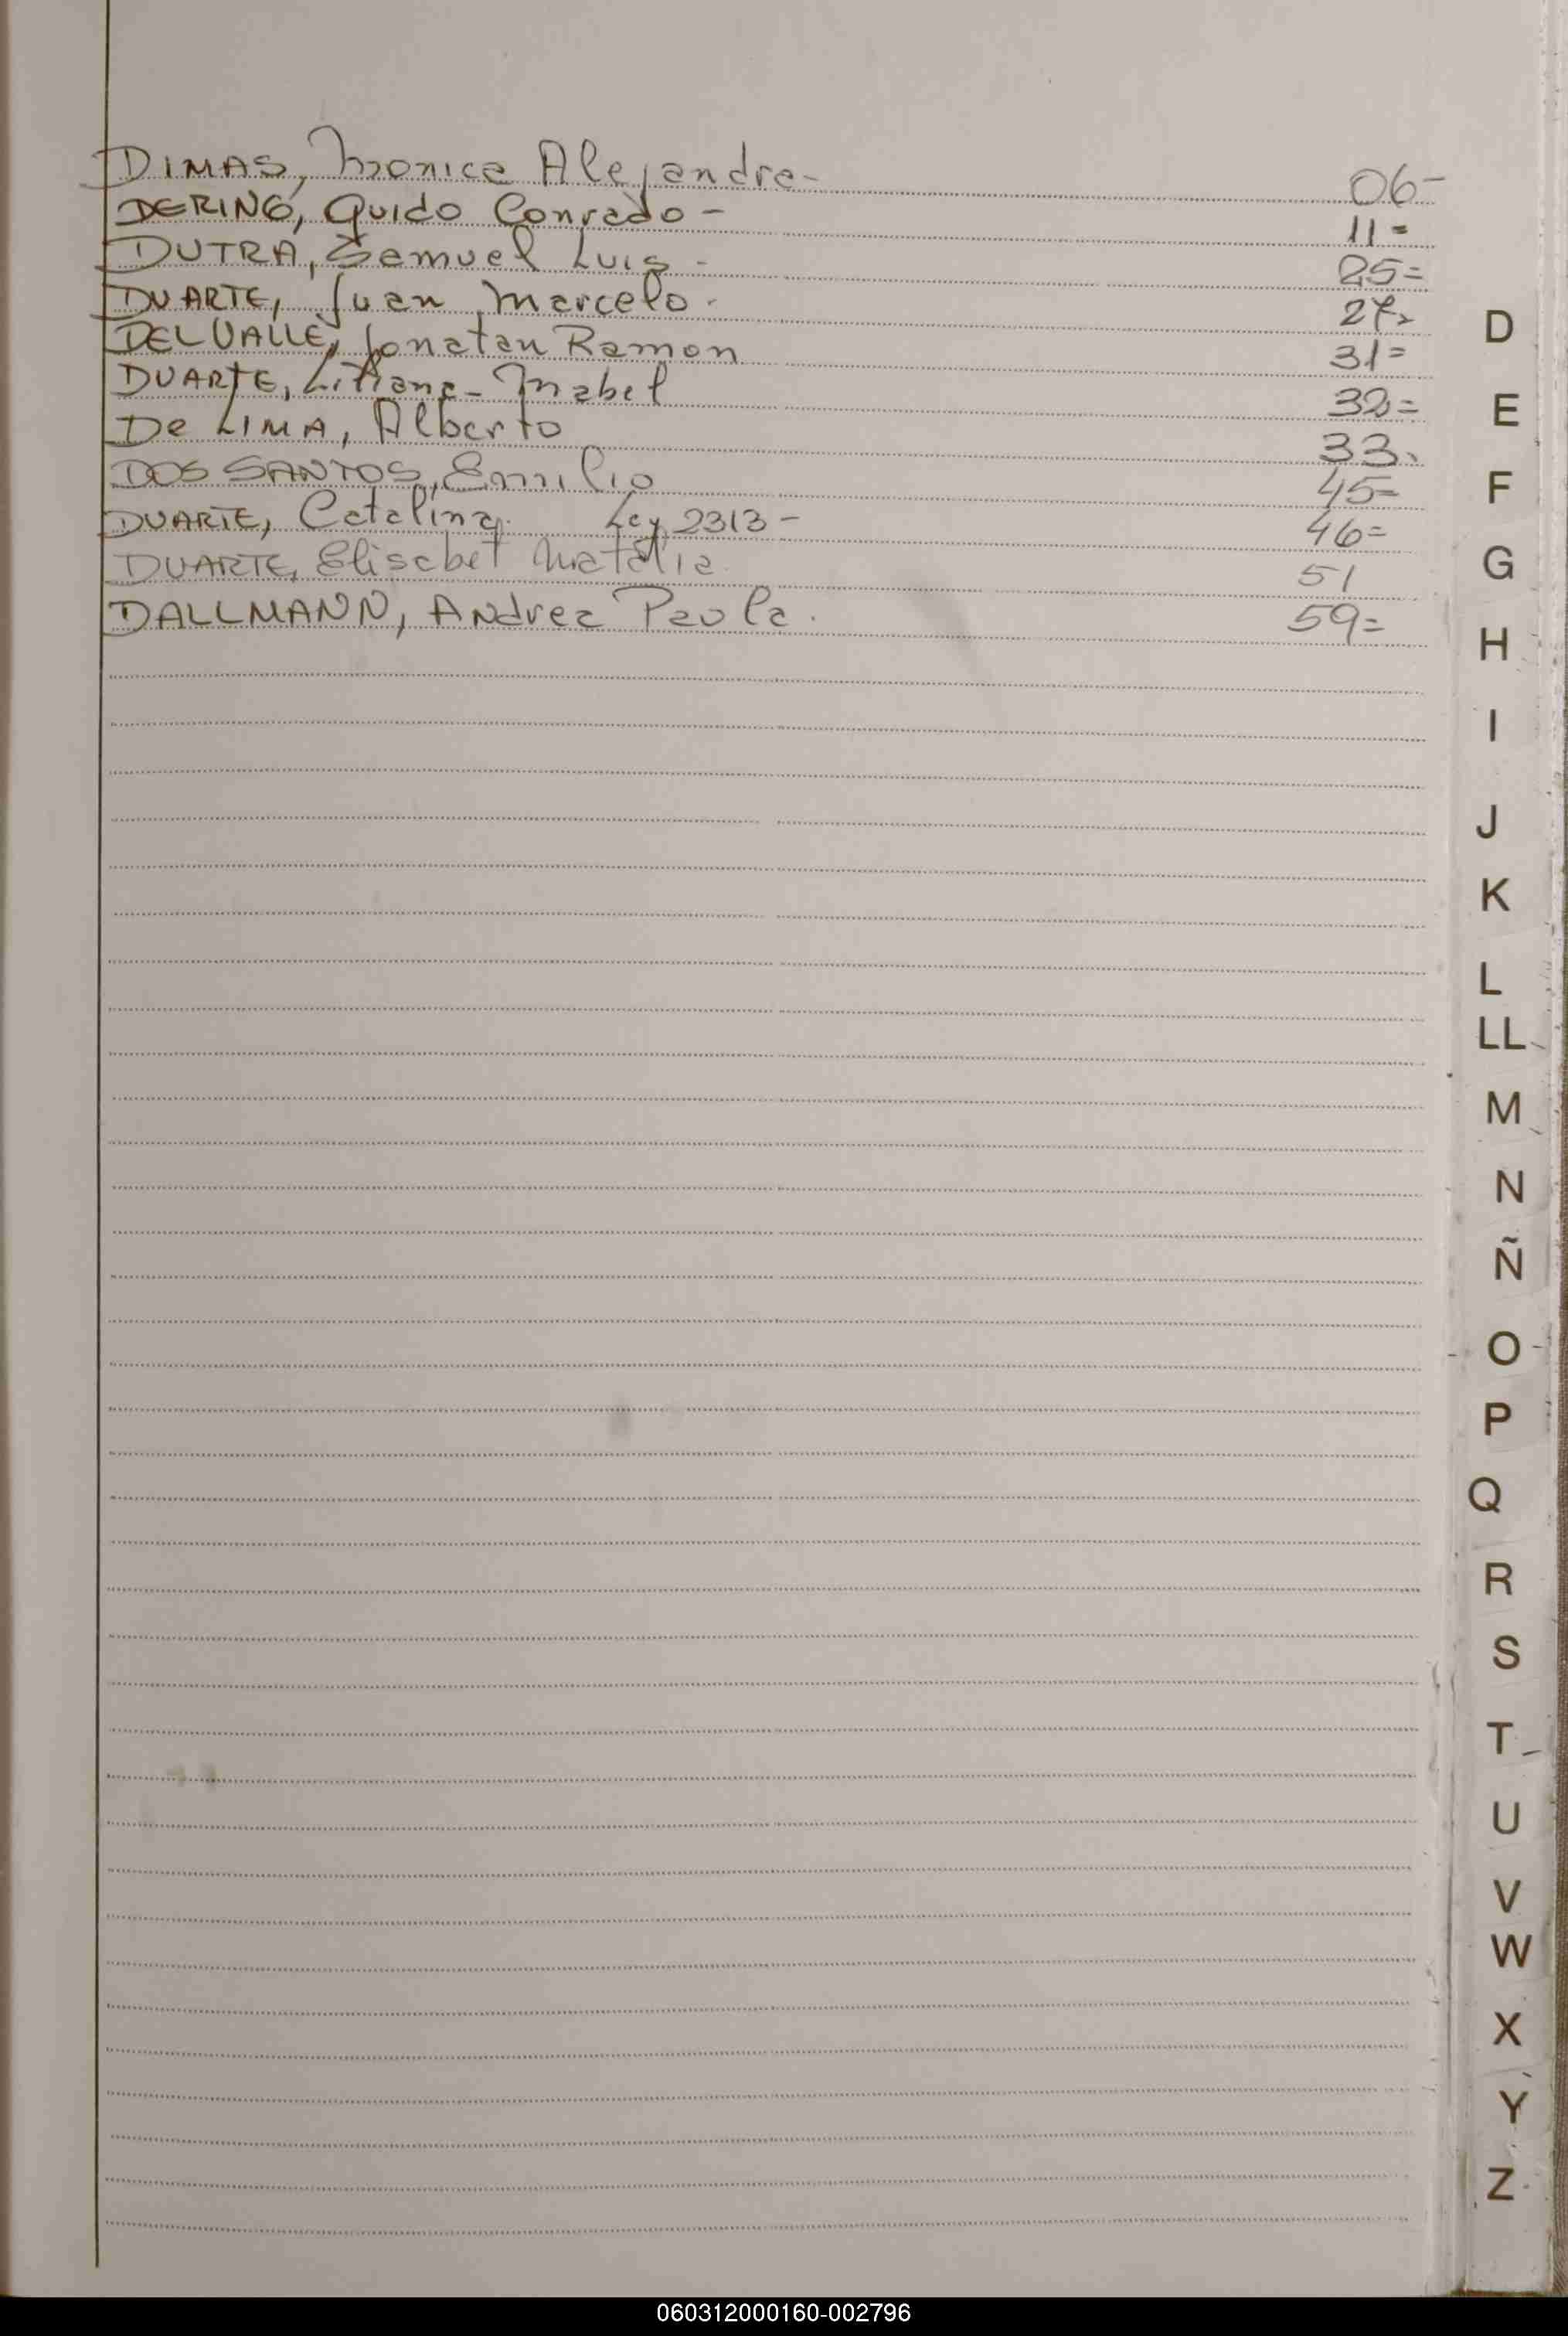 DIMAS, Monica Alejandra- 06-
DERING, Guido Conrado - 11=
DUTRA, Samuel Luis - 25=
DUARTE, Juan Marcelo. 27=
DEL VALLE, Jonatan Ramon 31=
DUARTE, Liliana- Mabel 32=
De LIMA, Alberto 33.
DOS SANTOS, Emilio 45=
DUARTE, Catalina. Ley 2313 - 46=
DUARTE, Elisabet Natalia. 51
DALLMANN, Andrea Paula. 59=
D
E
F
G
H
I
J
K
L
LL
M
N
Ñ
O
P
Q
R
S
T
U
V
W
X
Y
Z
060312000160-002796